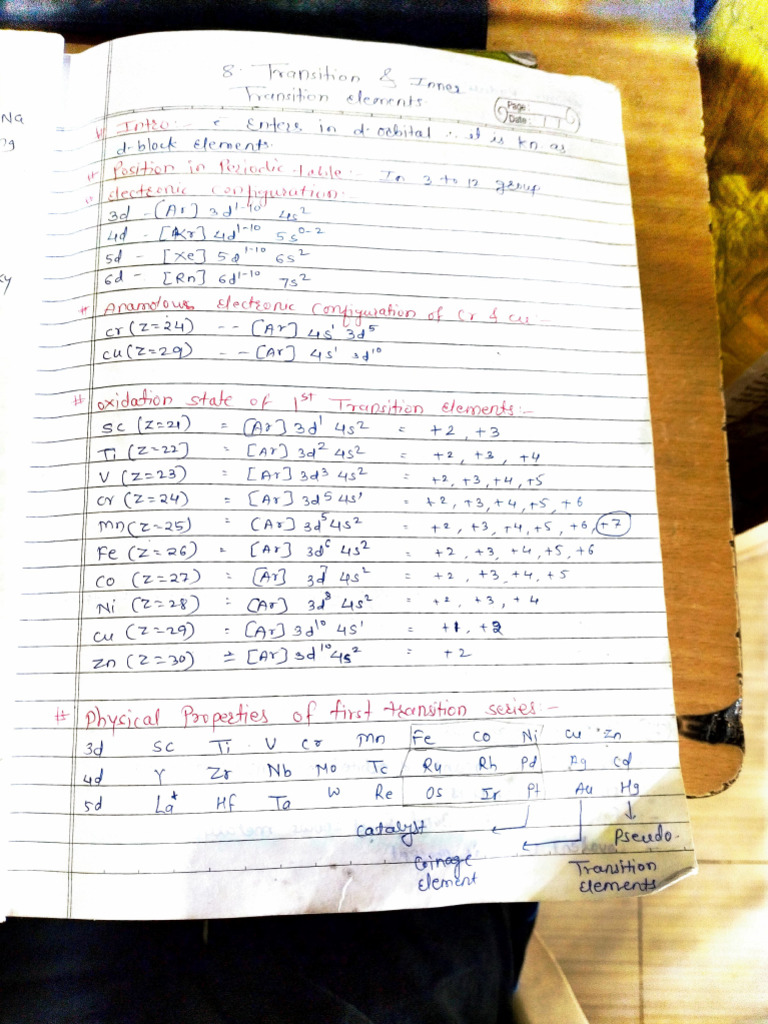 Na
8. Transition & Inner
Transition elements.
Page:
Date:
# Intro:- e⁻ Enters in d-orbital ∴ it is kn as
d-block elements.
# Position in Periodic table:- In 3 to 12 group
# electronic configuration:-
3d - [Ar] 3d¹⁻¹⁰ 4s²
4d - [Kr] 4d¹⁻¹⁰ 5s⁰⁻²
5d - [Xe] 5d¹⁻¹⁰ 6s²
6d - [Rn] 6d¹⁻¹⁰ 7s²
# Anamolous electronic configuration of Cr & Cu:-
Cr (Z=24) -- [Ar] 4s¹ 3d⁵
Cu (Z=29) -- [Ar] 4s¹ 3d¹⁰
# oxidation state of 1st Transition elements:-
Sc (Z=21) = [Ar] 3d¹ 4s² = +2, +3
Ti (Z=22) = [Ar] 3d² 4s² = +2, +3, +4
V (Z=23) = [Ar] 3d³ 4s² = +2, +3, +4, +5
Cr (Z=24) = [Ar] 3d⁵ 4s¹ = +2, +3, +4, +5, +6
Mn (Z=25) = [Ar] 3d⁵ 4s² = +2, +3, +4, +5, +6, +7
Fe (Z=26) = [Ar] 3d⁶ 4s² = +2, +3, +4, +5, +6
Co (Z=27) = [Ar] 3d⁷ 4s² = +2, +3, +4, +5
Ni (Z=28) = [Ar] 3d⁸ 4s² = +2, +3, +4
Cu (Z=29) = [Ar] 3d¹⁰ 4s¹ = +1, +2
Zn (Z=30) = [Ar] 3d¹⁰ 4s² = +2
# Physical Properties of first transition series:-
3d Sc Ti V Cr Mn Fe Co Ni Cu Zn
4d Y Zr Nb Mo Tc Ru Rh Pd Ag Cd
5d La* Hf Ta W Re Os Ir Pt Au Hg
catalyst
Pseudo-
Transition
elements
Coinage
element